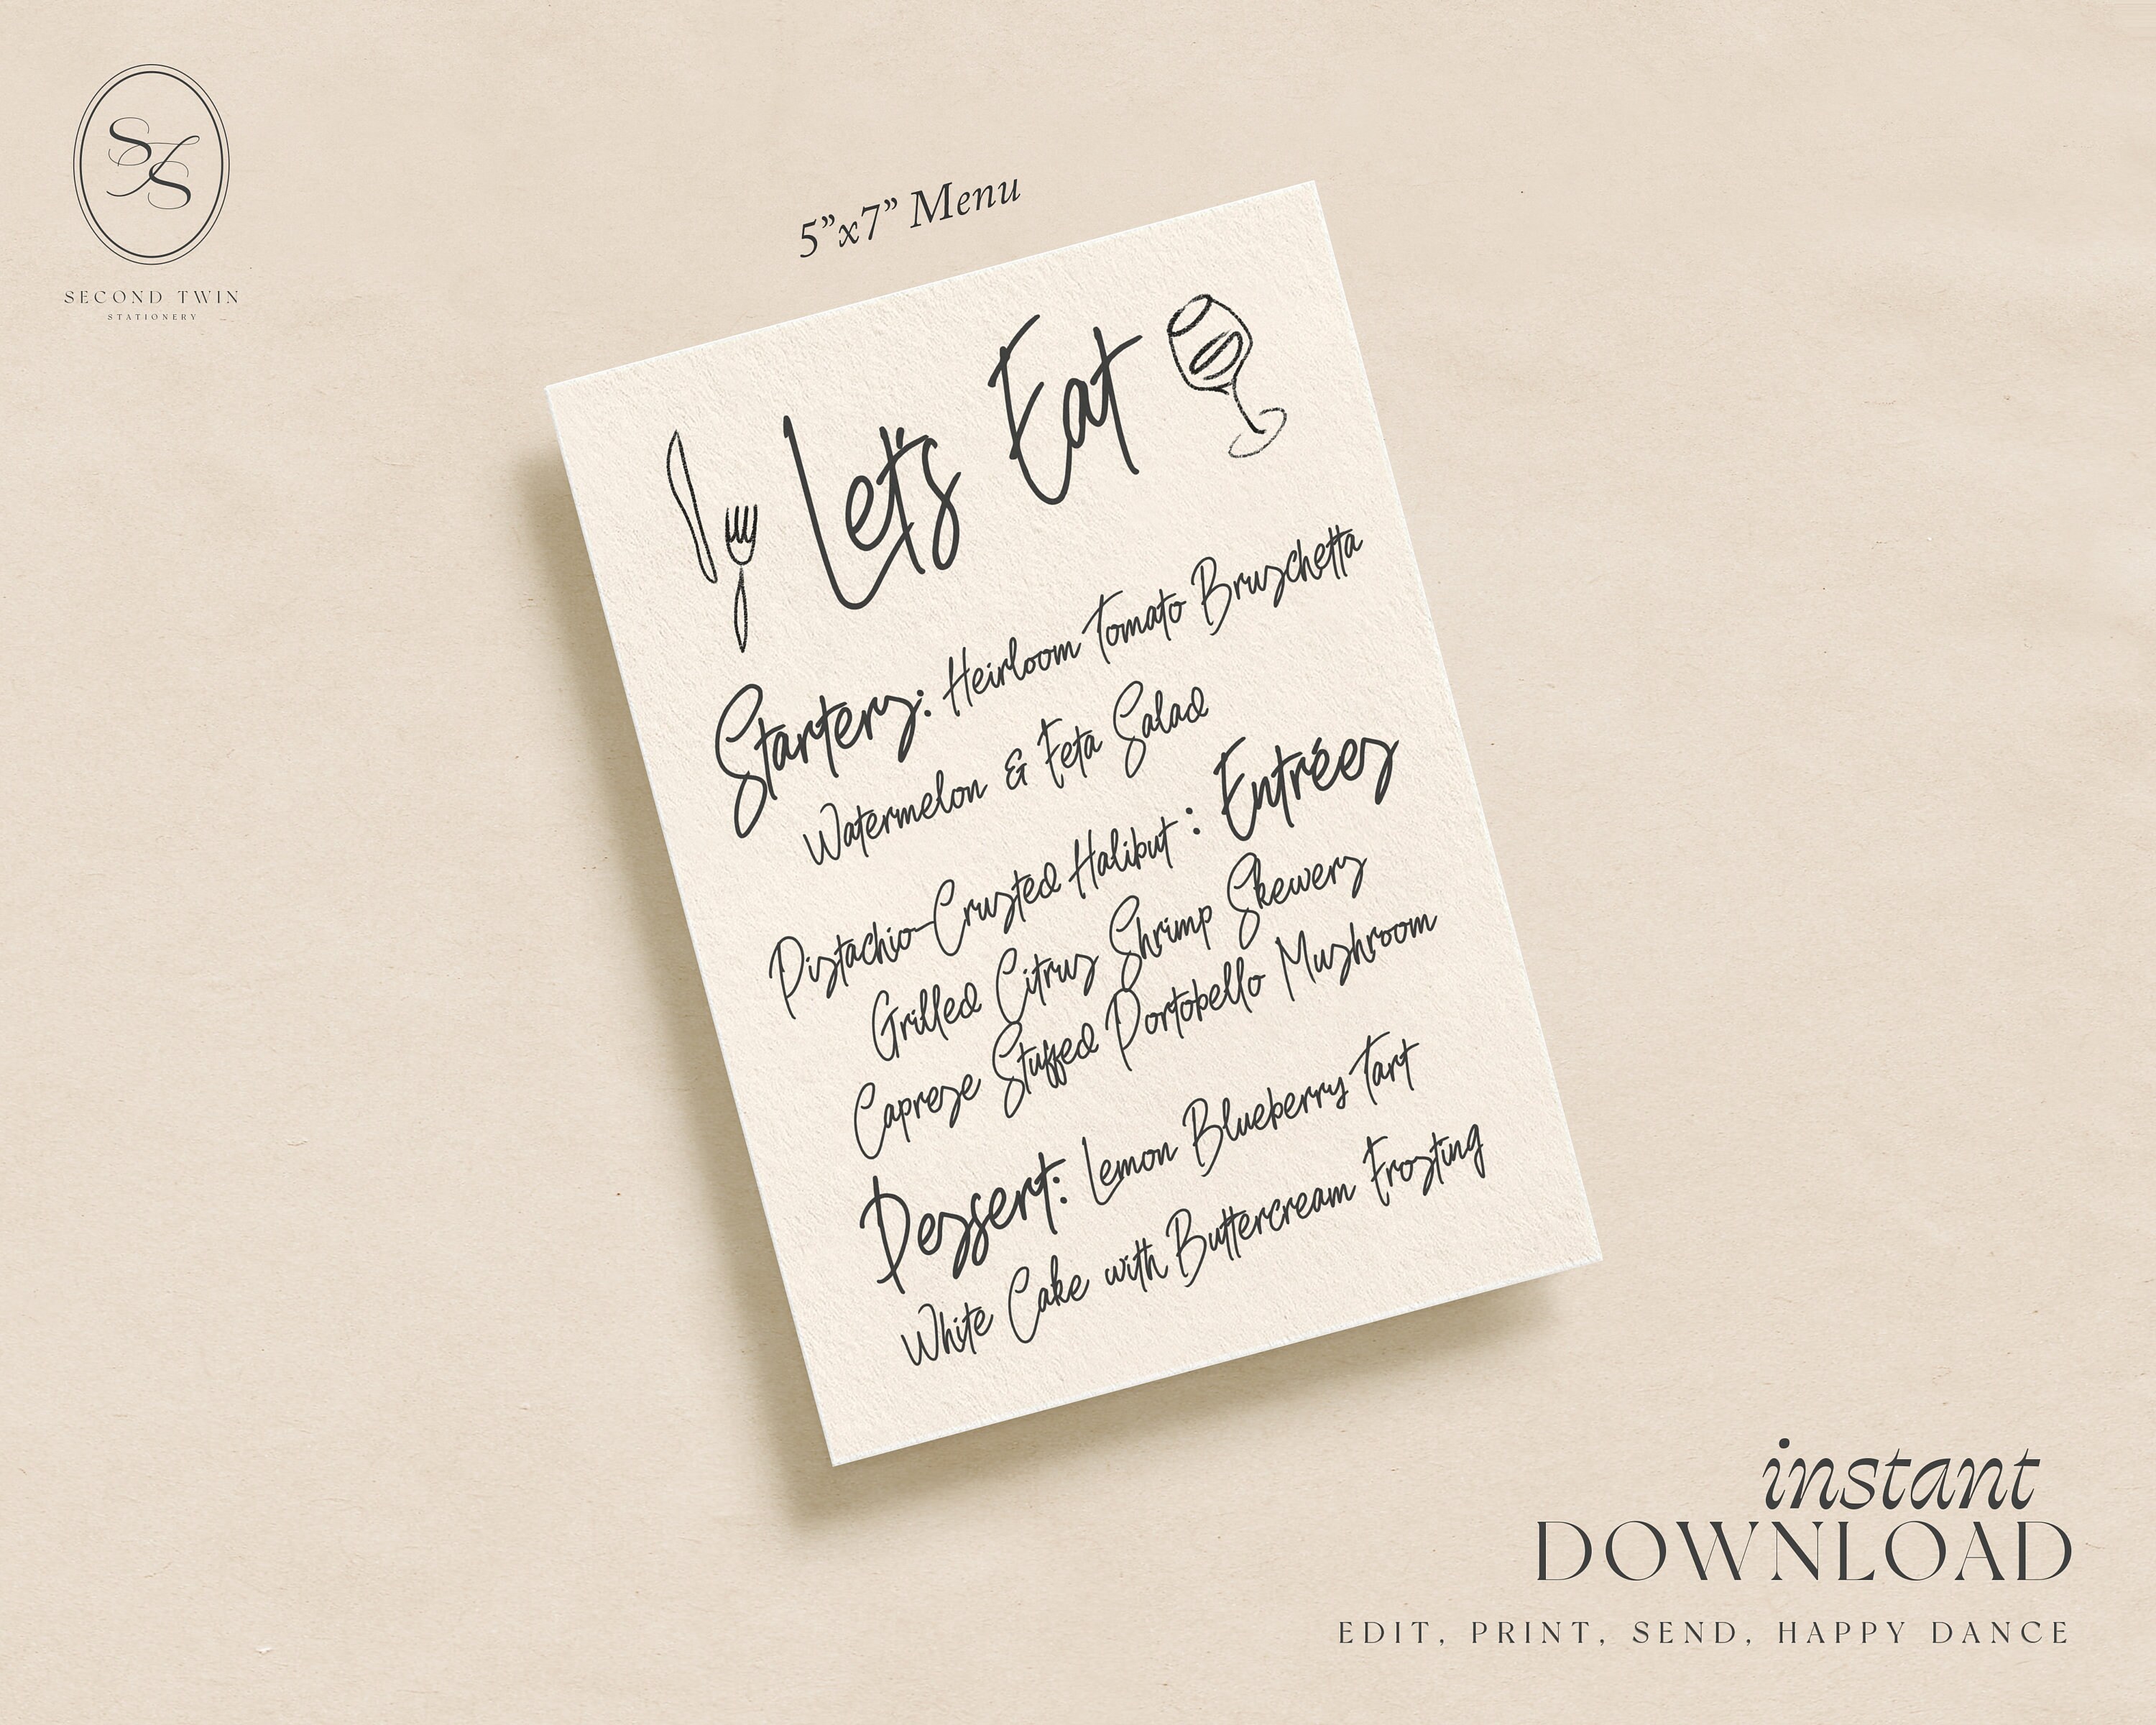 SS
SECOND TWIN
STATIONERY
5”x7” Menu
Let's Eat
Starters: Heirloom Tomato Bruschetta
Watermelon & Feta Salad
Pistachio-Crusted Halibut : Entrées
Grilled Citrus Shrimp Skewers
Caprese Stuffed Portobello Mushroom
Dessert: Lemon Blueberry Tart
White Cake with Buttercream Frosting
instant
DOWNLOAD
EDIT, PRINT, SEND, HAPPY DANCE